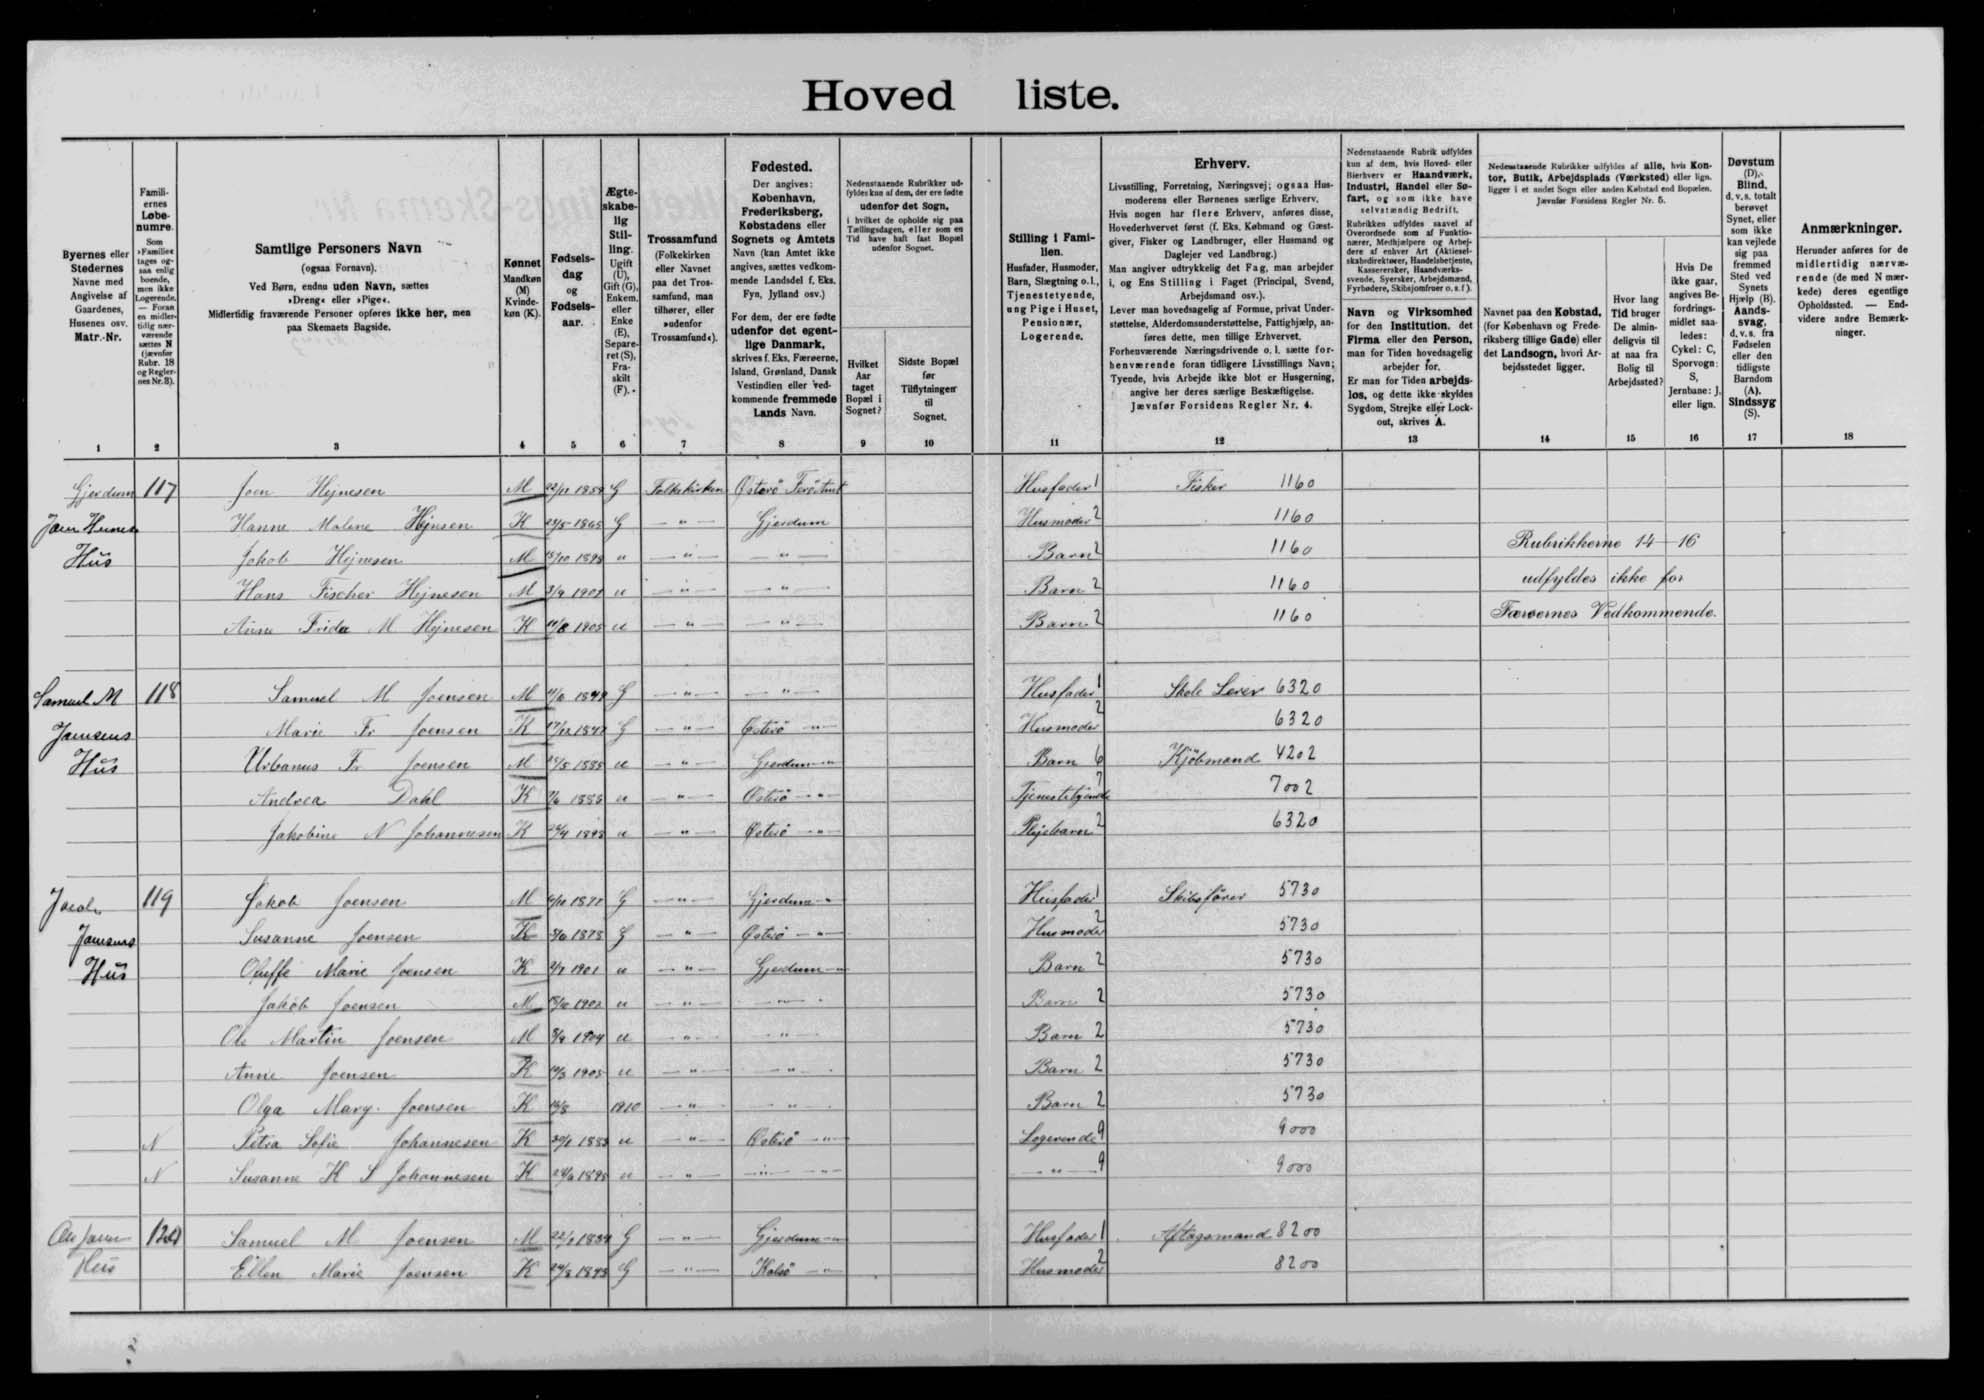 Hoved liste.
Byernes eller Stedernes Navne med Angivelse af Gaardenes, Husenes osv. Matr.-Nr.
Famili- ernes Løbe- numre. Som »Familie« tages og- saa enlig boende, men ikke Logerende. — Foran en midler- tidig nær- værende sættes N (jævnfør Rubr. 18 og Regler- nes Nr. 8).
Samtlige Personers Navn
(ogsaa Fornavn).
Ved Børn, endnu uden Navn, sættes
»Dreng« eller »Pige«.
Midlertidig fraværende Personer opføres ikke her, men
paa Skemaets Bagside.
Kønnet Mandkøn (M) Kvinde- køn (K).
Fødsels- dag og Fødsels- aar.
Ægte- skabe- lig Stil- ling. Ugift (U), Gift (G), Enkem. eller Enke (E), Separe- ret (S), Fra- skilt (F).
Trossamfund (Folkekirken eller Navnet paa det Tros- samfund, man tilhører, eller »udenfor Trossamfund«).
Fødested.
Der angives:
København,
Frederiksberg,
Købstadens eller
Sognets og Amtets
Navn (kan Amtet ikke
angives, sættes vedkom-
mende Landsdel f. Eks.
Fyn, Jylland osv.)
For dem, der ere fødte
udenfor det egent-
lige Danmark,
skrives f. Eks. Færøerne,
Island, Grønland, Dansk
Vestindien eller ved-
kommende fremmede
Lands Navn.
Nedenstaaende Rubrikker ud-
fyldes kun af dem, der ere fødte
udenfor det Sogn,
i hvilket de opholde sig paa
Tællingsdagen, eller som en
Tid have haft fast Bopæl
udenfor Sognet.
Hvilket Aar taget Bopæl i Sognet?
Sidste Bopæl før Tilflytningen til Sognet.
Stilling i Fami- lien.
Husfader, Husmoder,
Barn, Slægtning o.l.,
Tjenestetyende,
ung Pige i Huset,
Pensionær,
Logerende.
Erhverv.
Livsstilling, Forretning, Næringsvej; ogsaa Hus-
moderens eller Børnenes særlige Erhverv.
Hvis nogen har flere Erhverv, anføres disse,
Hovederhvervet først (f. Eks. Købmand og Gæst-
giver, Fisker og Landbruger, eller Husmand og
Daglejer ved Landbrug.)
Man angiver udtrykkelig det Fag, man arbejder
i, og Ens Stilling i Faget (Principal, Svend,
Arbejdsmand osv.).
Lever man hovedsagelig af Formue, privat Under-
støttelse, Alderdomsunderstøttelse, Fattighjælp, an-
føres dette, men tillige Erhvervet.
Forhenværende Næringsdrivende o. l. sætte for-
henværende foran tidligere Livsstillings Navn;
Tyende, hvis Arbejde ikke blot er Husgerning,
angive her deres særlige Beskæftigelse.
Jævnfør Forsidens Regler Nr. 4.
Nedenstaaende Rubrik udfyldes
kun af dem, hvis Hoved- eller
Bierhverv er Haandværk,
Industri, Handel eller Sø-
fart, og som ikke have
selvstændig Bedrift.
Rubrikken udfyldes saavel af
Overordnede som af Funktio-
nærer, Medhjælpere og Arbej-
dere af enhver Art (Aktiesel-
skabsdirektører, Handelsbetjente,
Kasserersker, Haandværks-
svende, Syersker, Arbejdsmænd,
Fyrbødere, Skibsjomfruer o. s. f.).
Navn og Virksomhed
for den Institution, det
Firma eller den Person,
man for Tiden hovedsagelig
arbejder for.
Er man for Tiden arbejds-
løs, og dette ikke skyldes
Sygdom, Strejke eller Lock-
out, skrives A.
Nedenstaaende Rubrikker udfyldes af alle, hvis Kon-
tor, Butik, Arbejdsplads (Værksted) eller lign.
ligger i et andet Sogn eller anden Købstad end Bopælen.
Jævnfør Forsidens Regler Nr. 5.
Navnet paa den Købstad, (for København og Frede- riksberg tillige Gade) eller det Landsogn, hvori Ar- bejdsstedet ligger.
Hvor lang Tid bruger De almin- deligvis til at naa fra Bolig til Arbejdssted?
Hvis De ikke gaar, angives Be- fordrings- midlet saa- ledes: Cykel: C, Sporvogn: S, Jernbane: J, eller lign.
Døvstum (D), Blind, d. v. s. totalt berøvet Synet, eller som ikke kan vejlede sig paa fremmed Sted ved Synets Hjælp (B). Aands- svag, d. v. s. fra Fødselen eller den tidligste Barndom (A). Sindssyg (S).
Anmærkninger.
Herunder anføres for de
midlertidig nærvæ-
rende (de med N mær-
kede) deres egentlige
Opholdssted. — End-
videre andre Bemærk-
ninger.
1 2 3 4 5 6 7 8 9 10 11 12 13 14 15 16 17 18
Gjerdum 117 Joen Hejnesen M 22/11 G Folkekirken Østerø Husfader 1 Fisker 1160
Hanne Malene Hejnsen K 1865 G — " — Gjerdum Husmoder 2 1160
Hus Jakob Hejnesen M 1898 u — " — — " — Barn 2 1160 Rubrikkerne 14–16
Hans Fischer Hejnesen M 3/9 u — " — — " — Barn 2 1160 udfyldes ikke for
Anne Frida M Hejnesen K 11/8 1905 u — " — — " — Barn 2 1160 Færøernes Vedkommende.
Samuel M 118 Samuel M Joensen M G — " — — " — Husfader 1 Skole Lærer 6320
Marie Fr Joensen K 17/12 G — " — Østerø — " — Husmoder 2 6320
Hus Urbanus Fr Joensen M 1885 u — " — Gjerdum — " — Barn 6 Kjöbmand 4202
Andrea Dahl K u — " — Østerø — " — Tjenestetyende 7 7002
Jakobine N Johannesen K 1898 u — " — Østerø — " — Plejebarn 2 6320
Jacob 119 Jakob Joensen M G — " — Gjerdum — " — Husfader 1 Skibsfører 5730
Joensens Susanne Joensen K 1878 G — " — Østerø — " — Husmoder 2 5730
Hus Marie Joensen K 1901 u — " — Gjerdum — " — Barn 2 5730
Jakob Joensen M u — " — — " — Barn 2 5730
Ole Martin Joensen M 1904 u — " — — " — Barn 2 5730
Anne Joensen K 1905 u — " — — " — Barn 2 5730
Olga Mary Joensen K 1910 — " — — " — Barn 2 5730
N Petra Sofie Johannesen K u — " — Østerø — " — Logerende 9 9000
N Susanne K S Johannesen K u — " — — " — — " — — " — 9 9000
Samuel M Joensen M G — " — Gjerdum — " — Husfader 1 Aftagsmand 8200
Hus Ellen Marie Joensen K G — " — Kalsø — " — Husmoder 2 8200